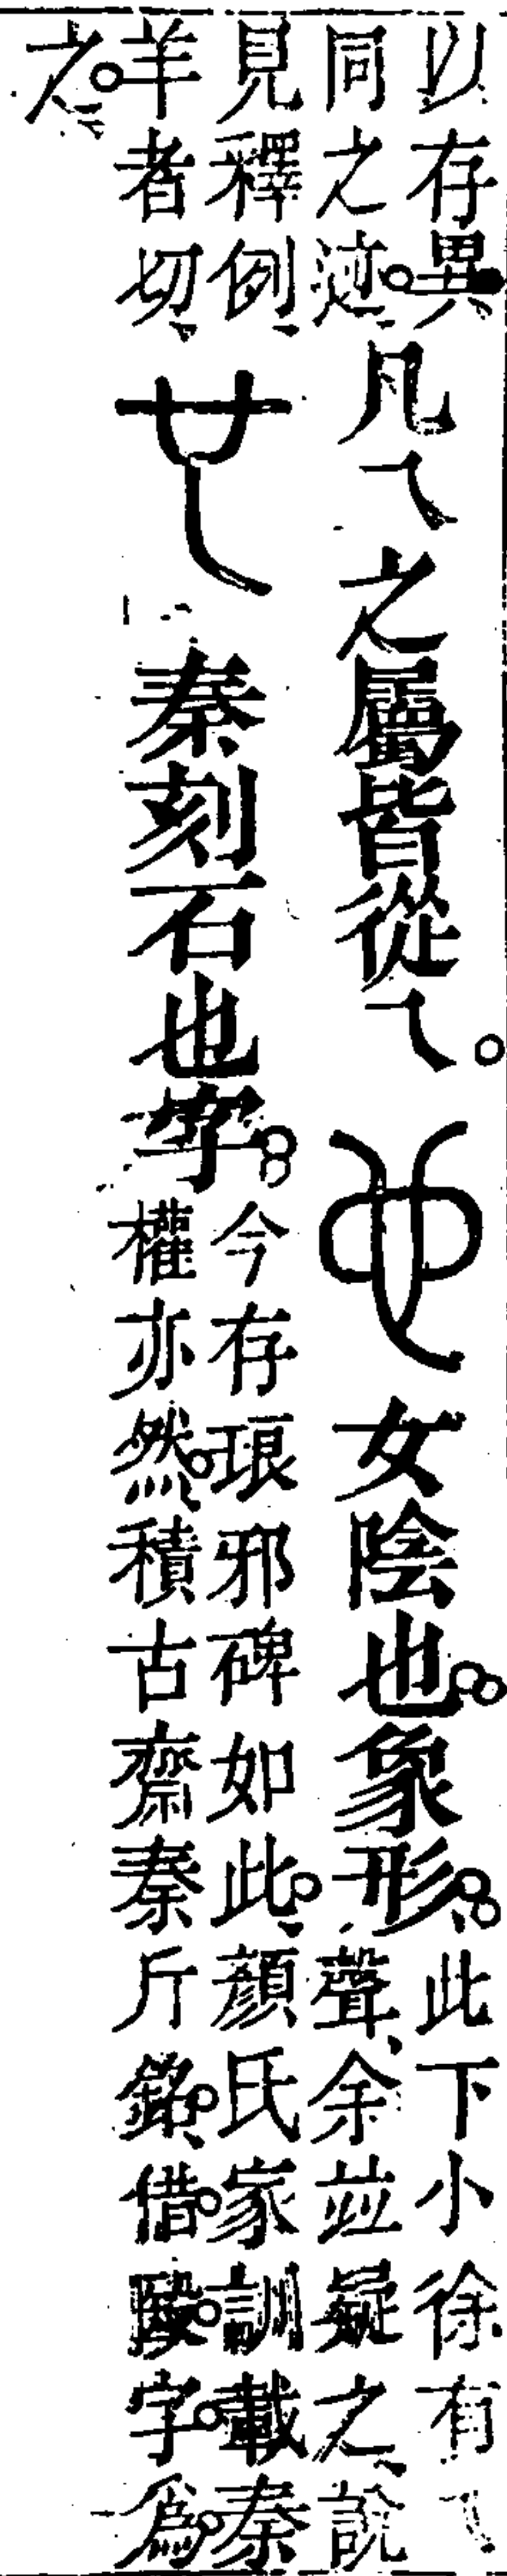 以存異
同之迹。
凡乁之屬皆從乁。
女陰也。象形。
此下小徐有乁
聲、余並疑之、說
見釋例、
羊者切、
秦刻石也字。
今存琅邪碑如此。顏氏家訓載秦
權亦然。積古齋秦斤銘。借。殹。字。爲。
之。